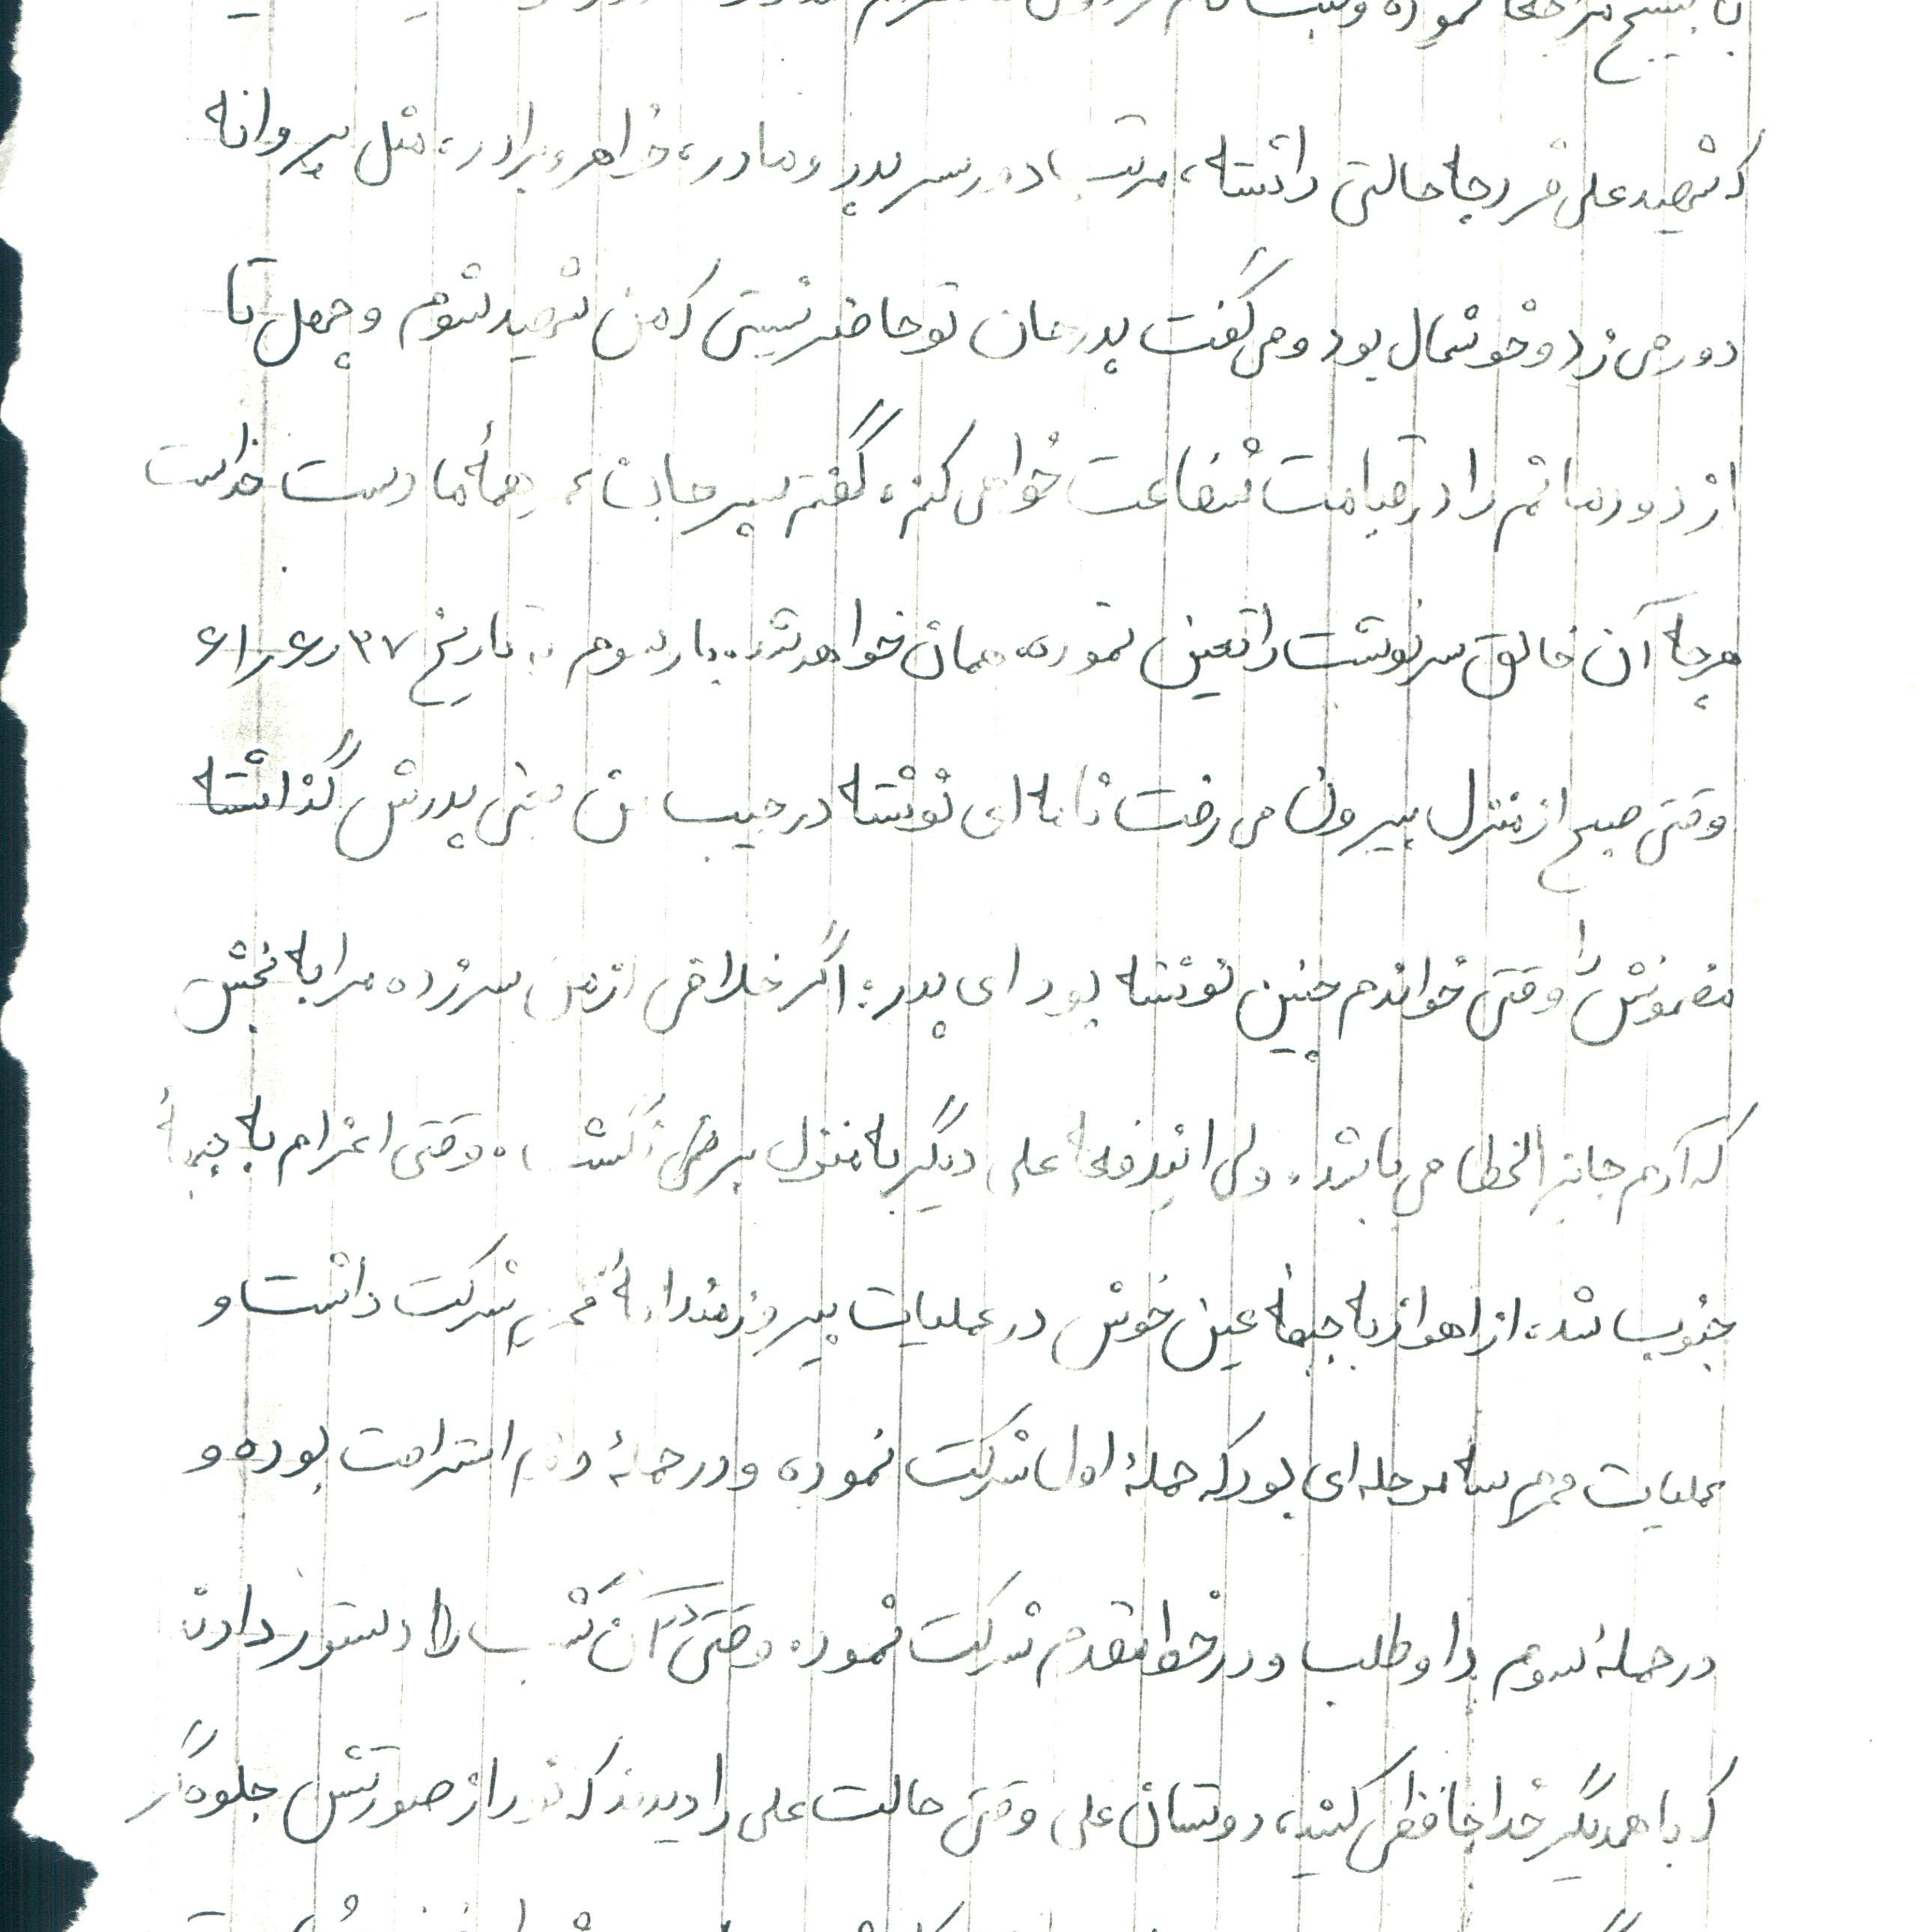 که شهید علی قر چه حالتی داشته، مرتب بادور سر پدر و مادر، خواهر و برادر، مثل پروانه
دور می زد و خوشحال بود و می گفت پدر جان تو حاضر نیستی که من شهید شوم و چهل تا
از دودمانم را در قیامت شفاعت خواهی کنم، گفتم پسر جان، همهٔ ما دست خداست
هرچه آن خالق سرنوشت را تعین نموده همان خواهد شد. بار سوم به تاریخ ۳۷ر۶ر۶۱
وقتی صبح از منزل بیرون می رفت نامه ای نوشته در جیب پدرش گذاشته
مضمونش را وقتی خواندم چنین نوشته بود ای پدر: اگر خلافی از من سرزده مرا به بخش
که آدم جایز الخطا می باشد. ولی ایندفعه علی دیگر به منزل بر نگشت. وقتی اعزام به جبههٔ
جنوب شد، از اهواز به جبههٔ عین خوش در عملیات پیروزمندانهٔ محرم شرکت داشت و
عملیات محرم سه مرحله ای بود که حملهٔ اول شرکت نموده و در حملهٔ دوم استراحت بوده و
در حملهٔ سوم داوطلب و در خط مقدم شرکت نموده وقتی در آن شب ما را دستور دادن
که با همدیگر خداحافظی کنید، دوستان علی وقتی حالت علی را دیدند که نور از صورتش جلوه گر